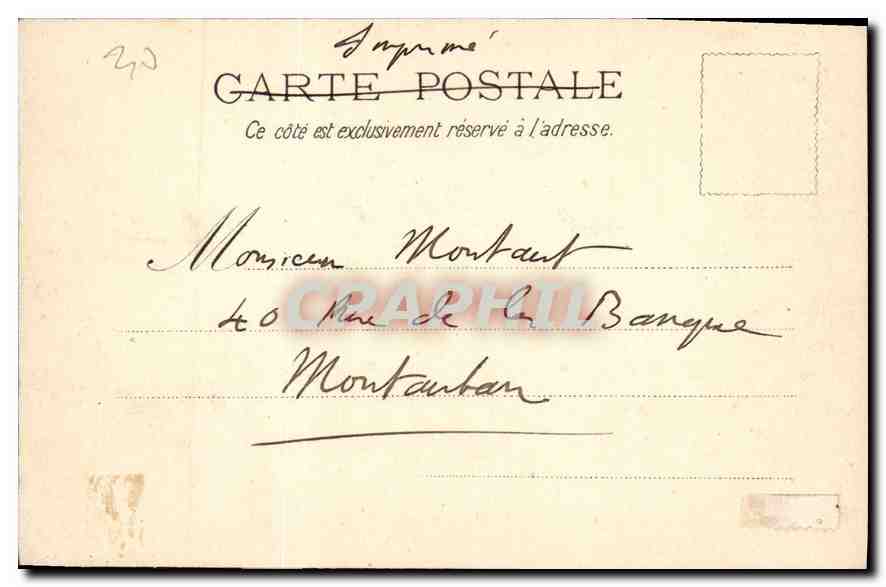 30
Imprimé
CARTE POSTALE
Ce côté est exclusivement réservé à l'adresse.
Monsieur Montaut
40 Rue de la Banque
CRAPHIL
Montauban